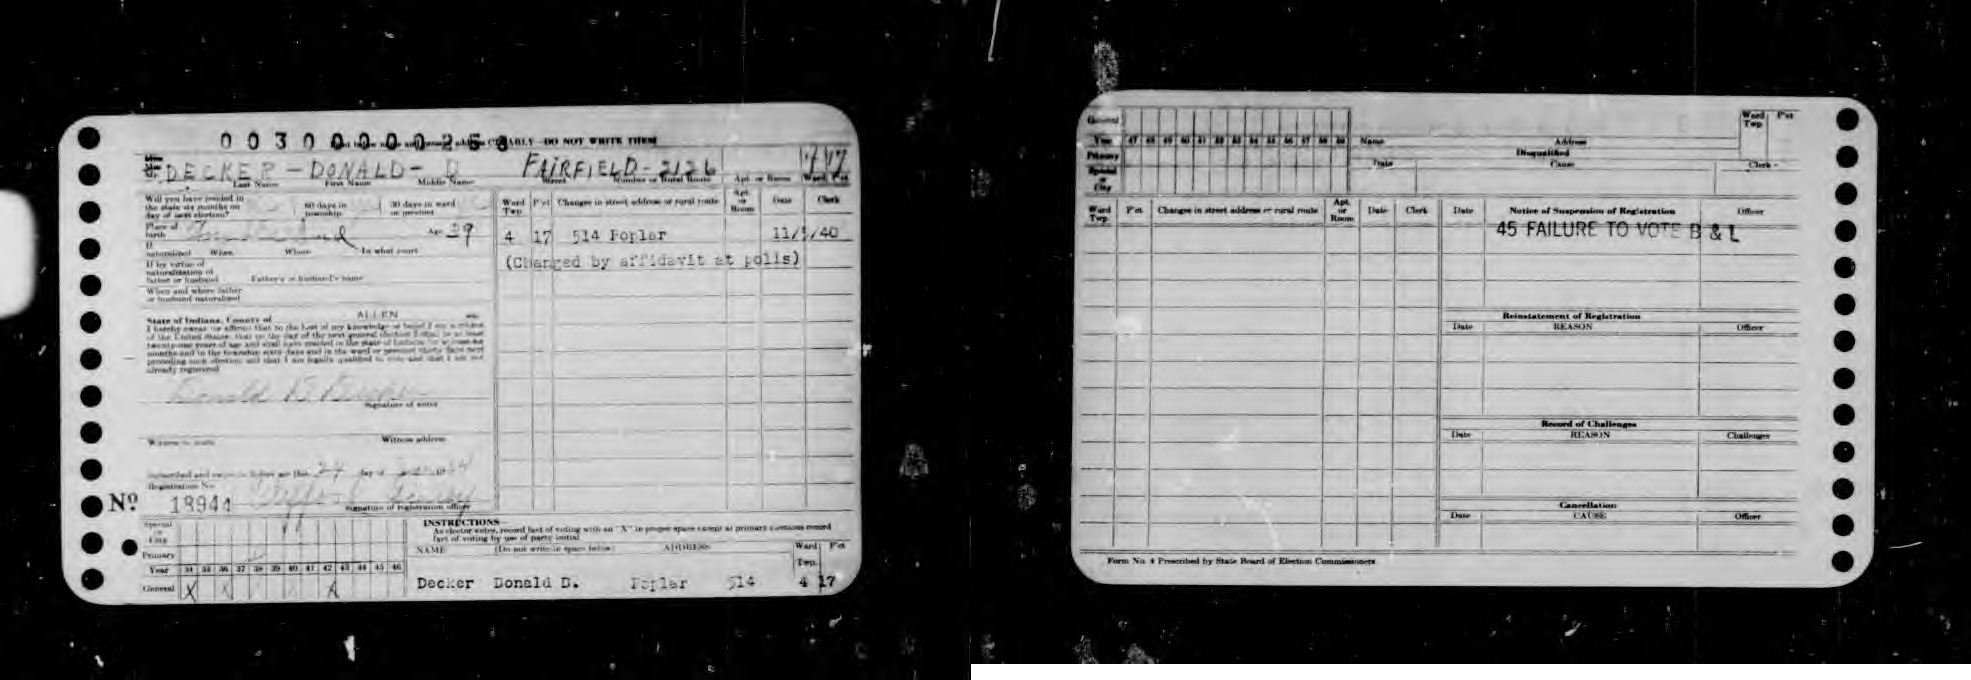 DO NOT WRITE THEM
DECKER - DONALD - D FAIRFIELD - 2126
Last Name First Name Middle Name Street Number or Rural Route Apt. or Room Ward Pct
Will you have resided in
the state six months on 60 days in 30 days in ward
day of next election? township or precinct
Place of
birth Age 29
If
naturalized When Where In what court
If by virtue of
naturalization of
father or husband Father's or husband's name
When and where father
or husband naturalized
State of Indiana, County of ALLEN ss:
I hereby swear or affirm that to the best of my knowledge or belief I am a citizen
of the United States; that on the day of the next general election I shall be at least
twenty-one years of age and shall have resided in the state of Indiana for at least six
months and in the township sixty days and in the ward or precinct thirty days next
preceding such election; and that I am legally qualified to vote and that I am not
already registered
Donald D. Decker
Signature of voter
Witness to mark Witness address
Subscribed and sworn to before me this day of
Registration No.
No. 18944
Signature of registration officer
Ward Twp. P'ct Changes in street address or rural route Apt. or Room Date Clerk
4 17 514 Poplar 11/5/40
(Changed by affidavit at polls)
Special
or
City
Primary
Year 34 35 36 37 38 39 40 41 42 43 44 45 46
General X X X
INSTRUCTIONS—
As elector votes, record fact of voting with an "X" in proper space except at primary elections record
fact of voting by use of party initial
NAME (Do not write in space below) ADDRESS Ward Twp. P'ct
Decker Donald D. Poplar 514 4 17
General
Year 47 48 49 50 51 52 53 54 55 56 57 58 59
Primary
Special
or
City
Name Address Ward Twp. P'ct
Disqualified
Date Cause Clerk
Ward Twp. P'ct Changes in street address or rural route Apt. or Room Date Clerk
Date Notice of Suspension of Registration Officer
45 FAILURE TO VOTE B & L
Reinstatement of Registration
Date REASON Officer
Record of Challenges
Date REASON Challenger
Cancellation
Date CAUSE Officer
Form No. 4 Prescribed by State Board of Election Commissioners